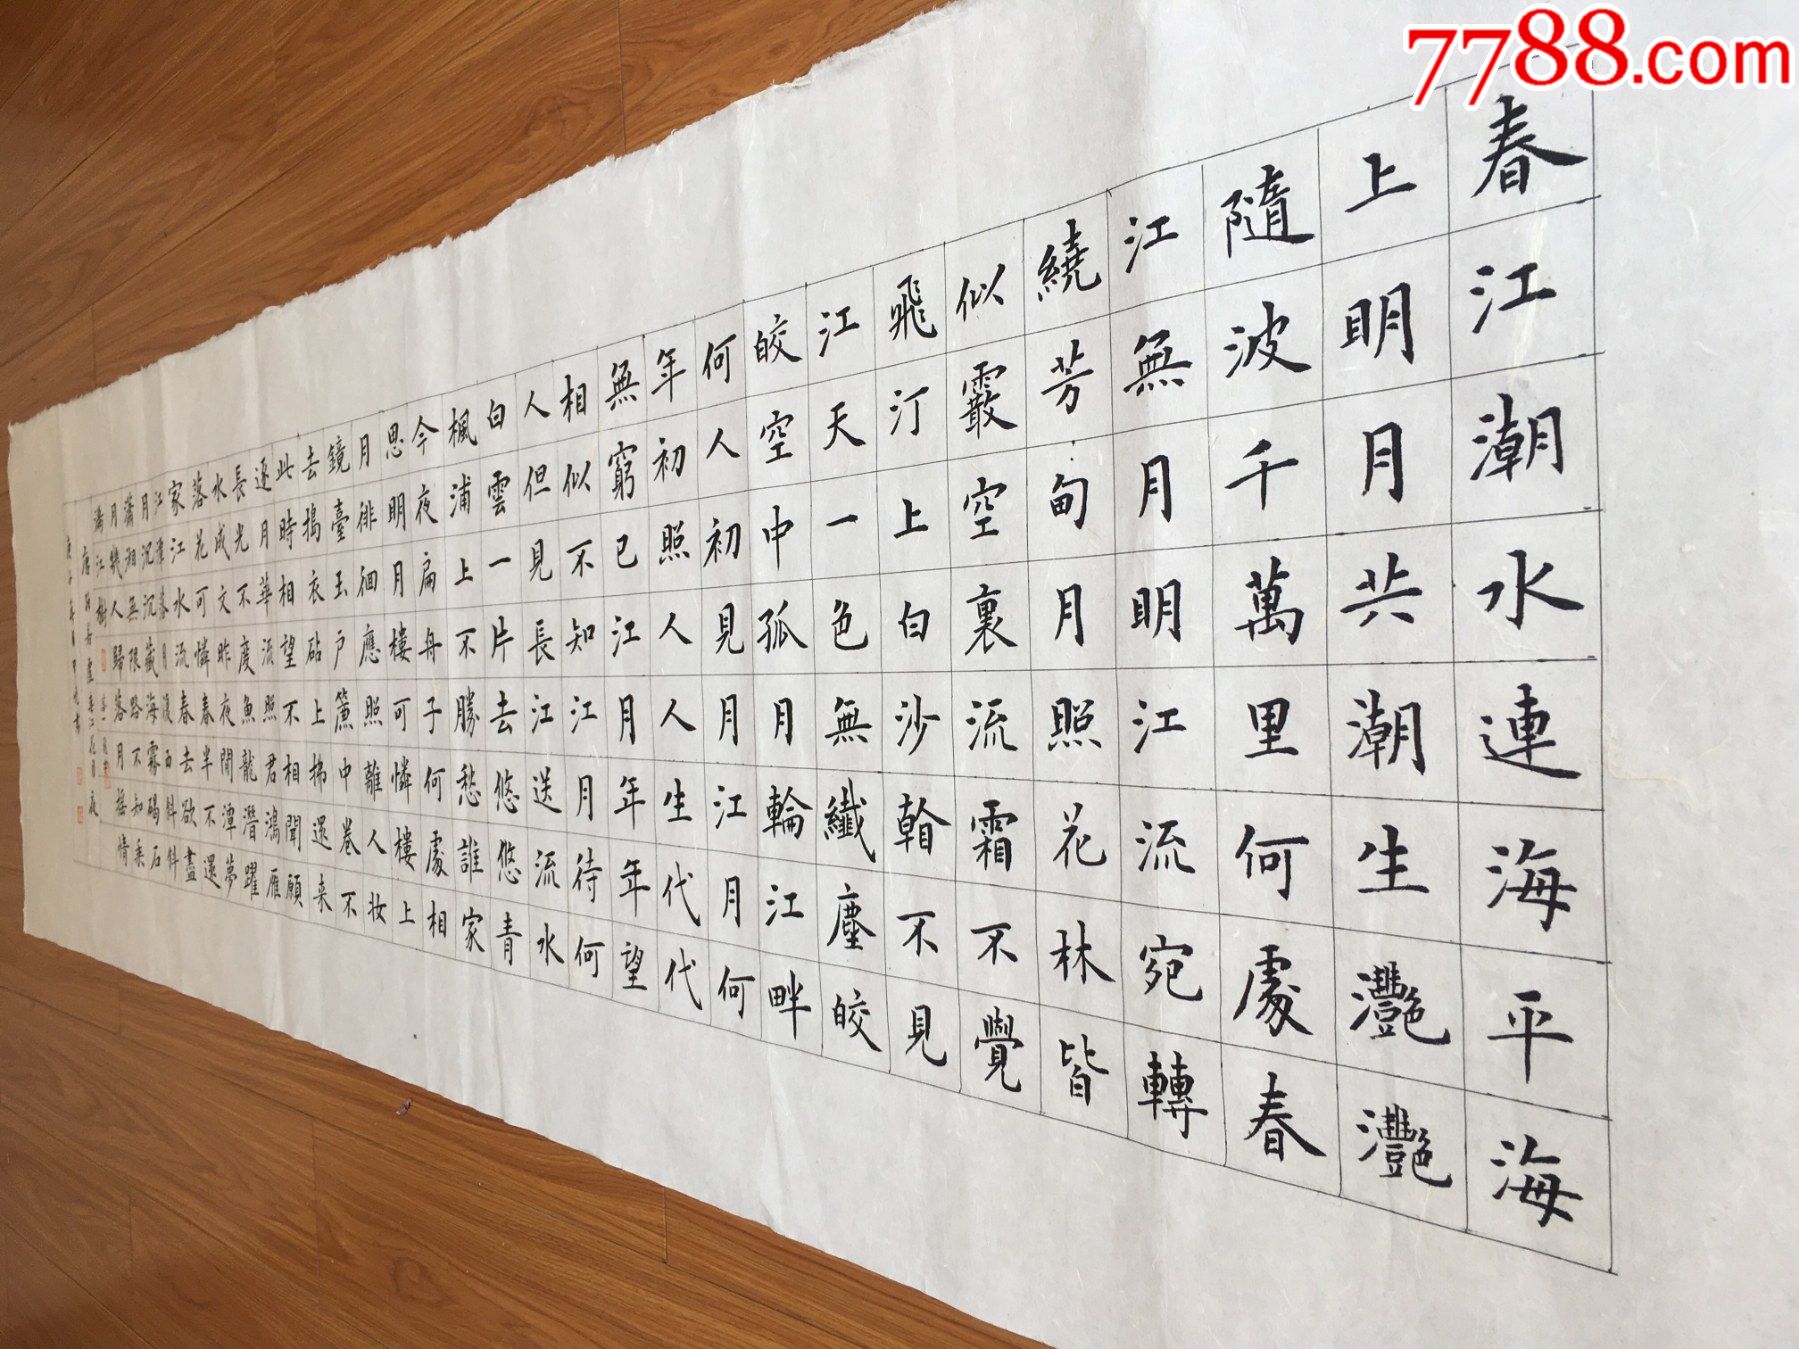 7788.com
春江潮水連海平海
上明月共潮生灧灧
隨波千萬里何處春
江無月明江流宛轉
繞芳甸月照花林皆
似霰空裏流霜不覺
飛汀上白沙不見
江天一色無纖塵皎
皎空中孤月輪江畔
何人初見月江月何
年初照人人生代代
無窮已江月年年望
相似不知江月待何
人但見長江送流水
白雲一片去悠悠青
楓浦上不勝愁誰家
今夜扁舟子何處相
思明月樓可憐樓上
月徘徊應照離人妝
鏡臺玉戶簾中卷不
去搗衣砧上拂還来
此時相望不相聞願
逐月華流照君鴻雁
長光不度魚龍潛躍
水成文昨夜閒潭夢
落花可憐春半不還
家江水流春去欲盡
江潭落月復西斜斜
月沉沉藏海霧碣石
瀟湘無限路不知乘
月幾人歸落月搖情
滿江樹
唐張若虛春江花月夜